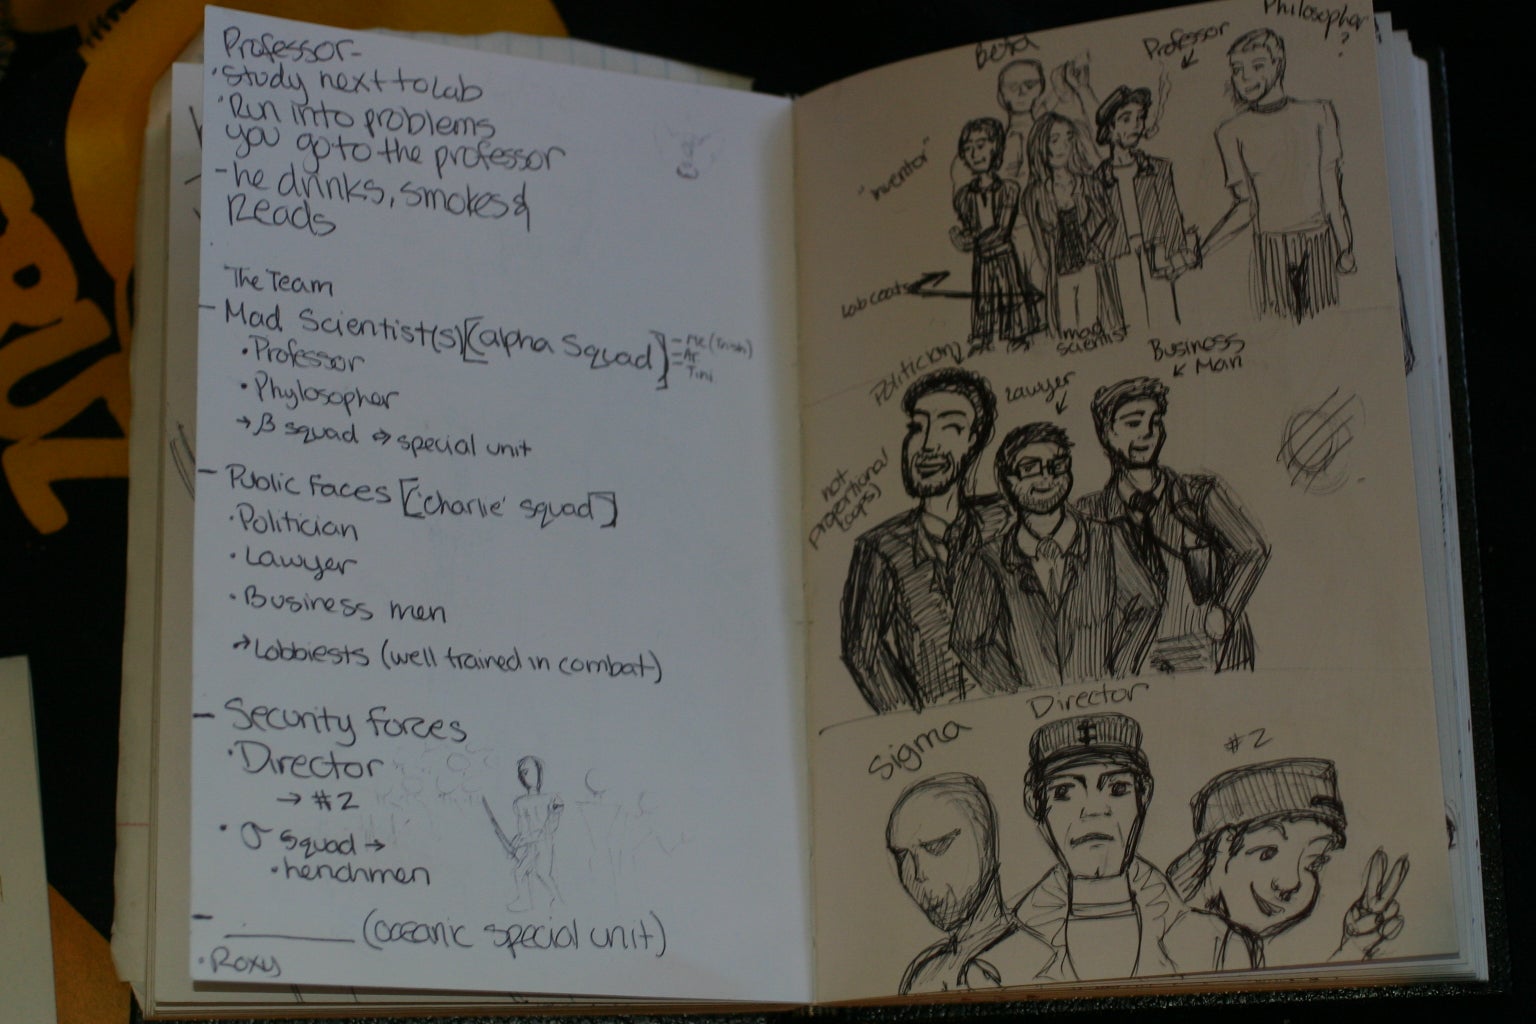 Professor-
• Study next to lab
• Run into problems
you go to the professor
- he drinks, smokes &
Reads
The Team
- Mad Scientist(s) [alpha Squad]
• Professor
• Phylosopher
→ β squad → special unit
- Public Faces ['Charlie' squad]
• Politician
• Lawyer
• Business men
→ Lobbiests (well trained in combat)
- Security Forces
• Director
→ #2
• σ squad →
• henchmen
- ________ (oceanic special unit)
• Roxy
Beta
Professor
Philosopher
?
"inventor"
Lab coats
mad
scientist
Politician
Lawyer
Business
Man
not
proportional
(oops)
Sigma
Director
#2